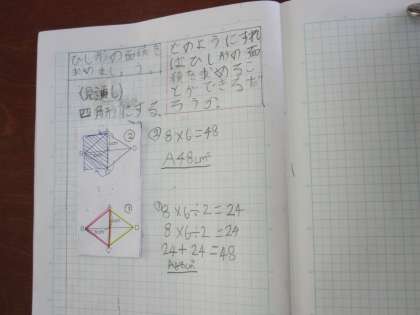 ひし形の面積を
求めましょう。
どのようにすれ
ばひし形の面
積を求めるこ
とができるだ
ろうか。
(見通し)
四角形にする。
②
② 8×6=48
A48cm²
①
① 8×6÷2=24
8×6÷2=24
24+24=48
A48cm²